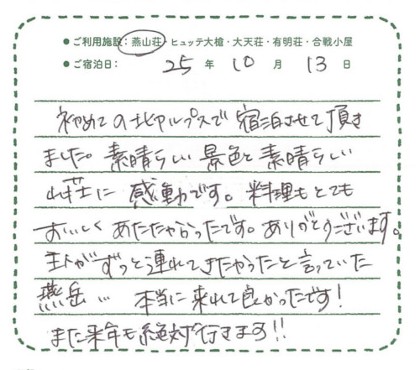 ●ご利用施設：燕山荘・ヒュッテ大槍・大天荘・有明荘・合戦小屋
●ご宿泊日： 25 年 10 月 13 日
初めての北アルプスで 宿泊させて頂き
ました。素晴らしい 景色と素晴らしい
山荘に 感動です。料理もとても
おいしく あたたかかったです。ありがとうございます。
主人がずっと連れてきたかったと言っていた
燕岳… 本当に来れて良かったです！
また来年も絶対行きます!!